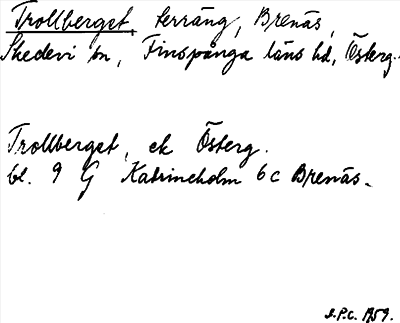 Trollberget, terräng, Brenäs,
Skedevi sn, Finspånga läns hd, Österg.
Trollberget, ek Österg.
bl. 9 G Katrineholm 6c Brenäs.
I.P.C. 1959.